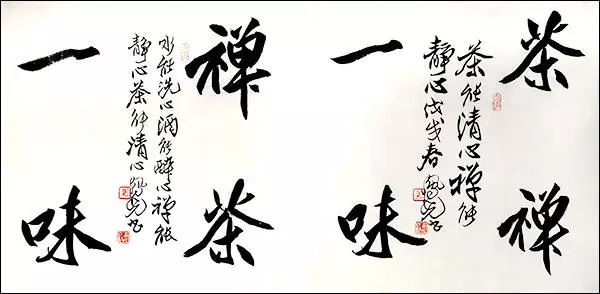 茶禅
茶能清心禅能
静心戊戌春
一味
禅茶
水能洗心酒能醉心禅能
静心茶能清心
一味